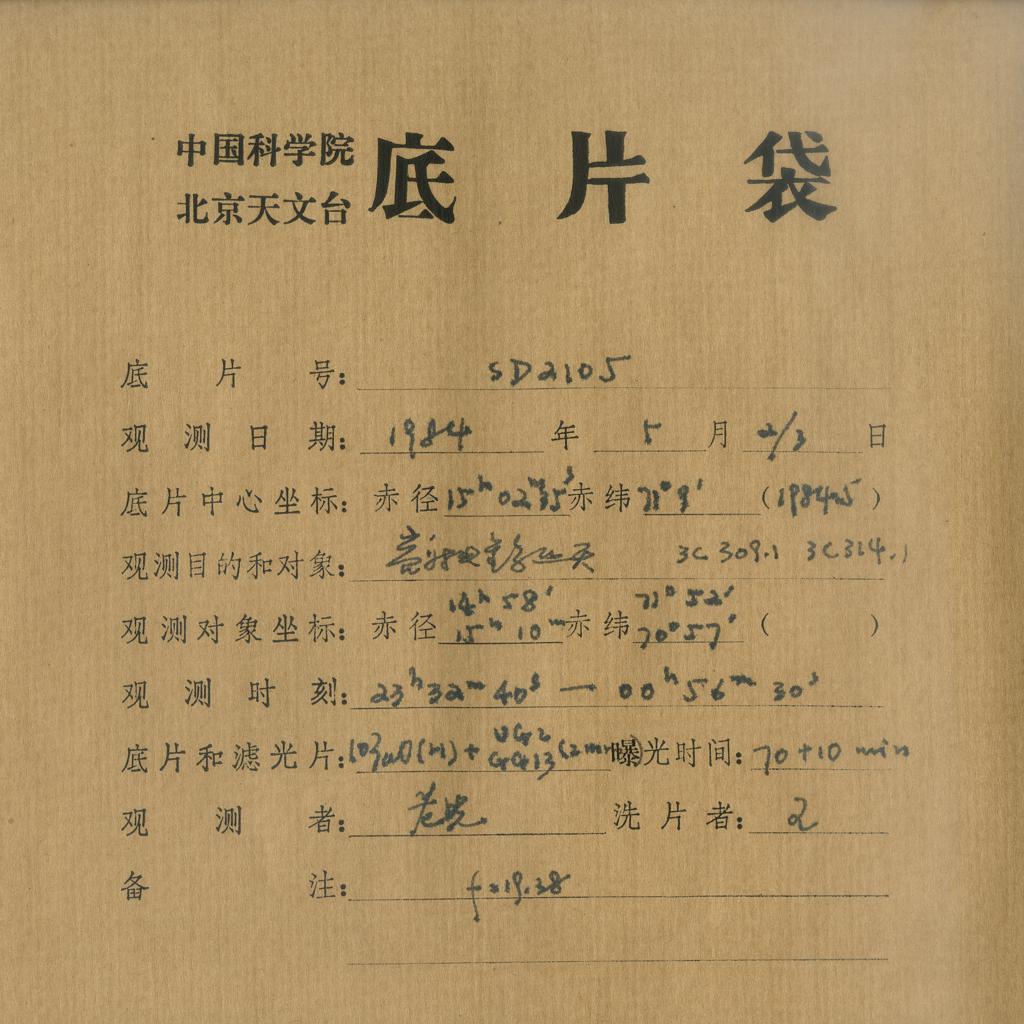 中国科学院
北京天文台
底片袋
底片号: SD2105
观测日期: 1984 年 5 月 2/3 日
底片中心坐标: 赤径 15ʰ 02ᵐ 35ˢ 赤纬 71° 9′ (1984.5)
观测目的和对象: 3C 309.1 3C 314.1
观测对象坐标: 赤径 14ʰ 58′ 赤纬 71° 52′ ( )
15ʰ 10ᵐ 70° 57′
观测时刻: 23ʰ 32ᵐ 40ˢ — 00ʰ 56ᵐ 30ˢ
底片和滤光片: 103aO(H) + UG2 GG13 (2mm) 曝光时间: 70+10 min
观测者: 洗片者:
备注: f=19.38